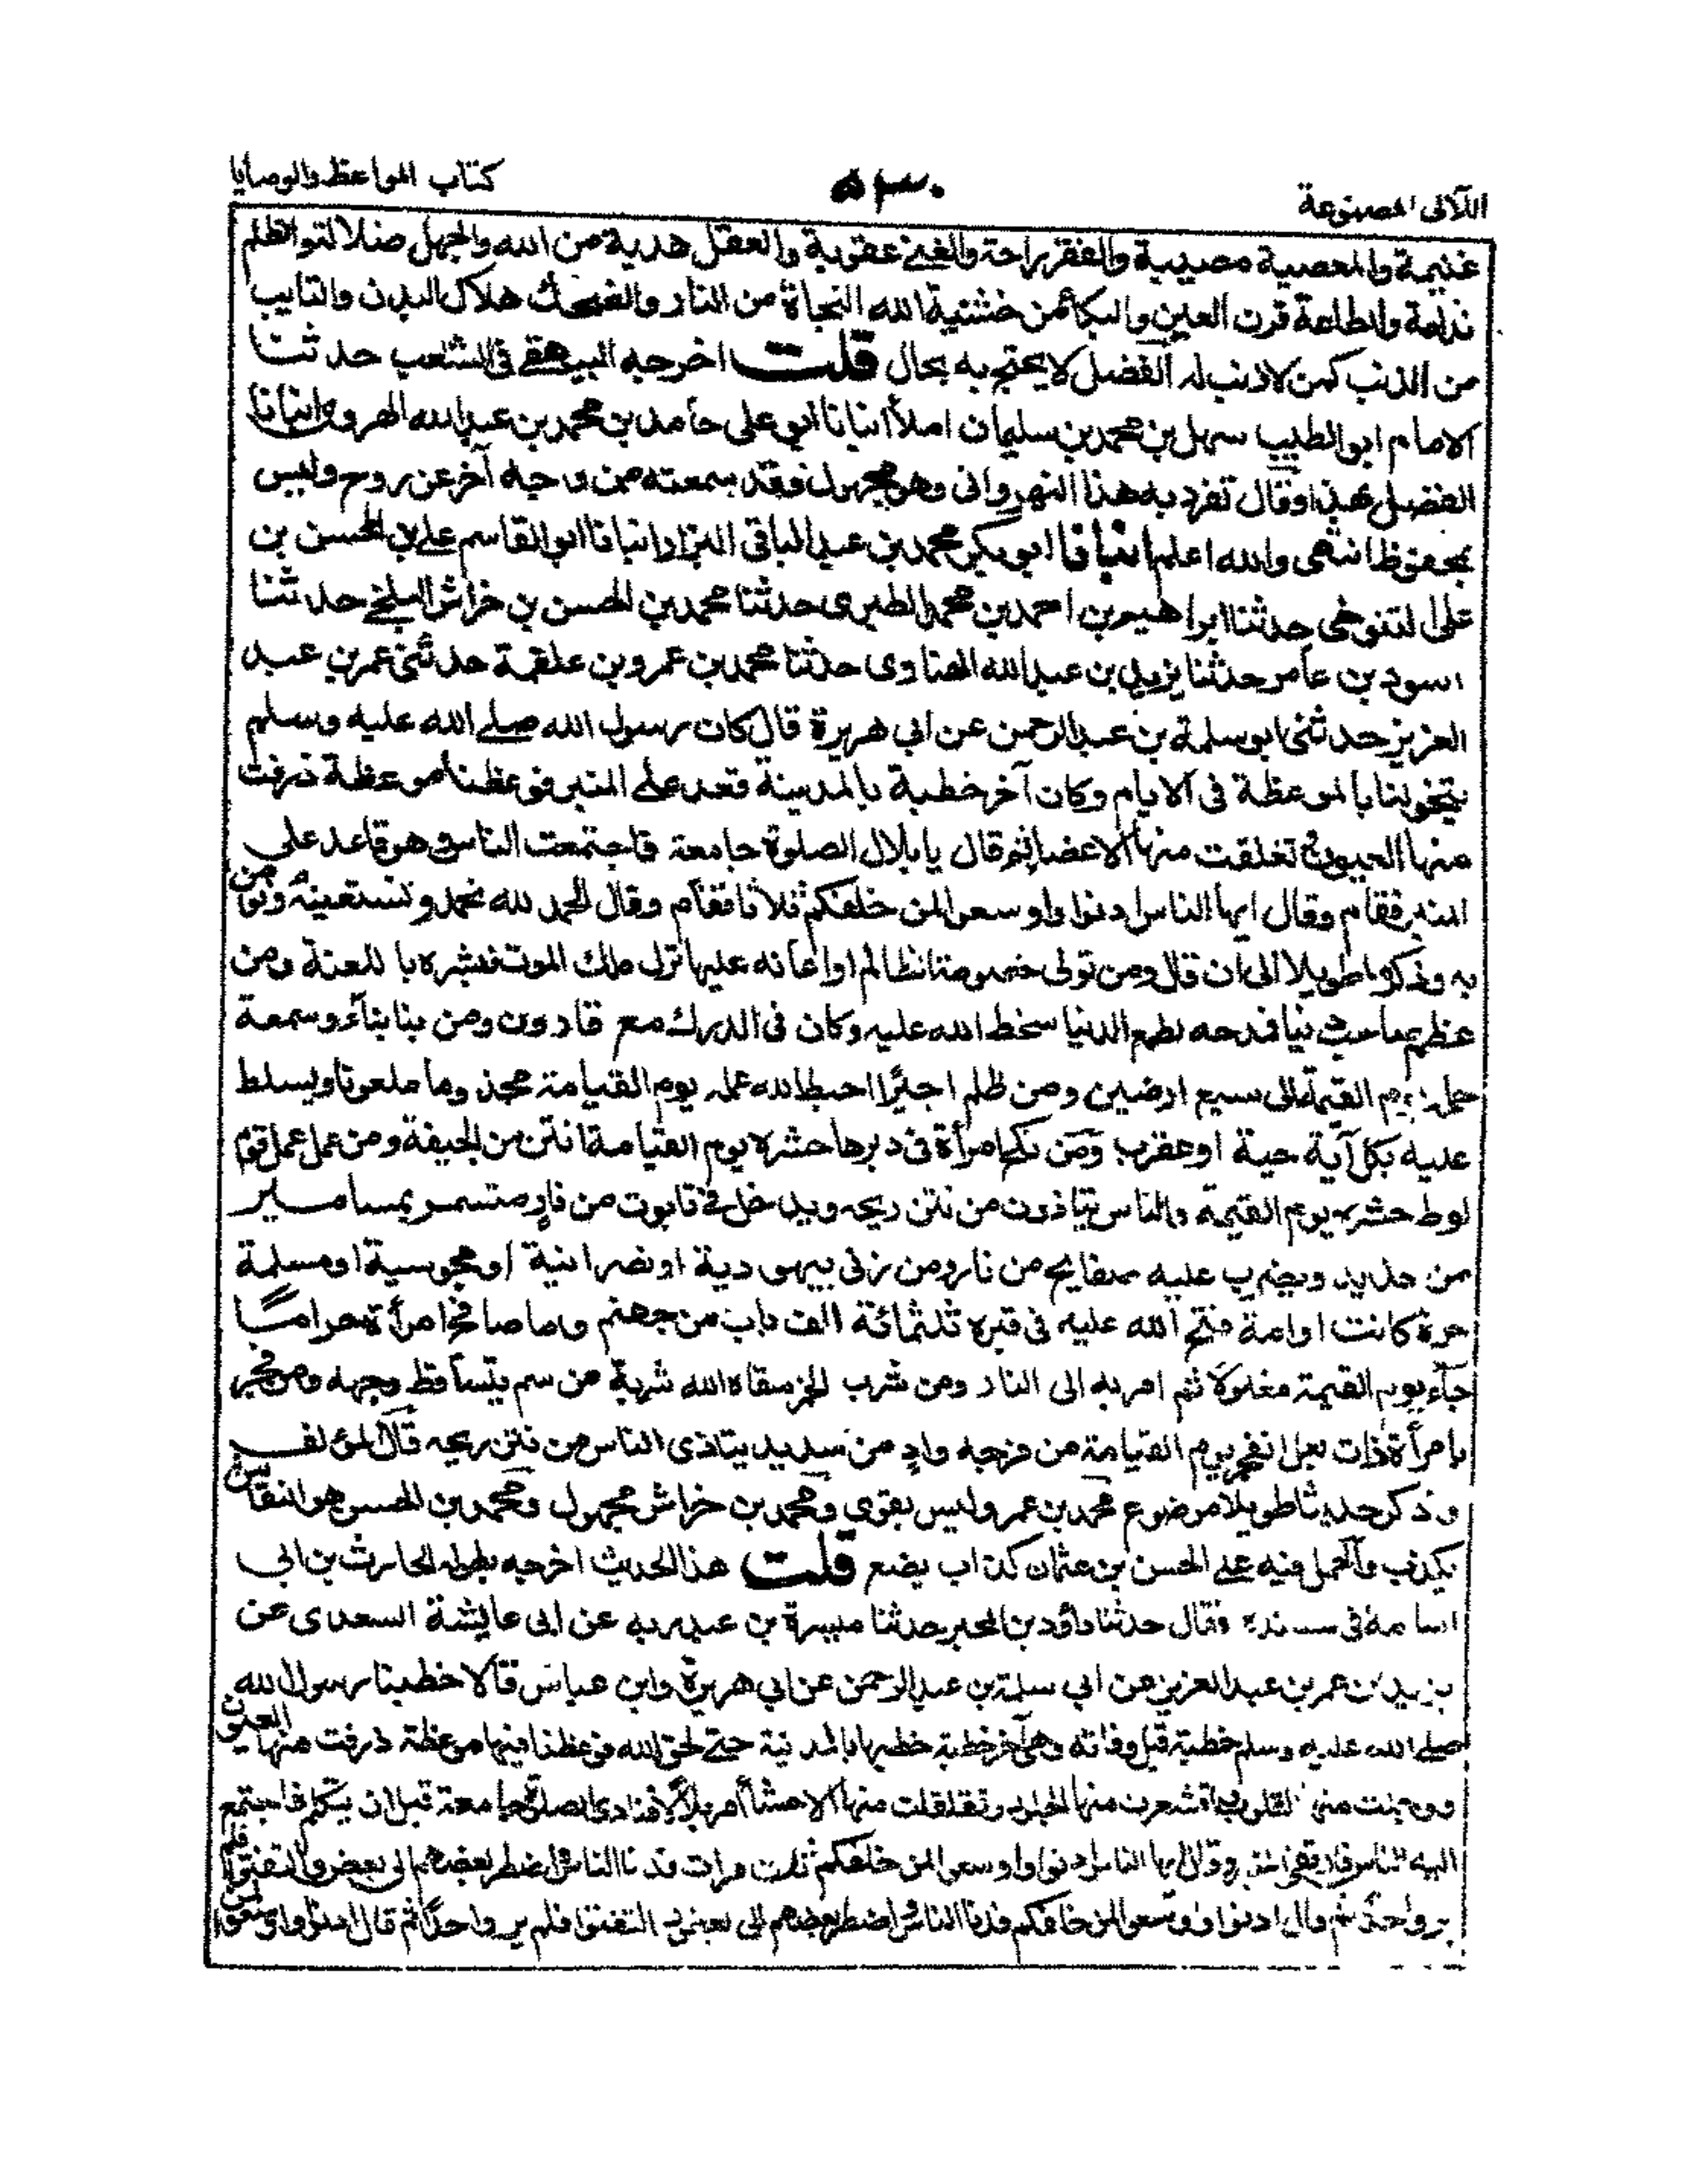 اللآلى المصنوعة
٥٣٠
كتاب المواعظ والوصايا
غنيمة والمعصية مصيبة والفقر راحة والغنى عقوبة والعقل هدية من الله والجهل ضلالة والظلم
ندامة والطاعة قرت العين والبكأ من خشية الله النجاة من النار والضحك هلاك البدن والتايب
من الذنب كمن لاذنب له الفضل لا يحتج به بحال قلت اخرجه البيهقى فى الشعب حدثنا
الامام ابو الطيب سهل بن محمد بن سليمان املأ انبانا ابو على حامد بن محمد بن عبد الله الهروى انبانا
الفضل بهذا وقال تفرد به هذا النهروانى وهو مجهول وقد سمعته من وجه آخر عن روح وليس
بمحفوظ انتهى والله اعلم انبانا ابو بكر محمد بن عبد الباقى البزار انبانا ابو القاسم على بن الحسن بن
على التنوخى حدثنا ابراهيم بن احمد بن محمد الطبرى حدثنا محمد بن الحسن بن خراش البلخى حدثنا
اسود بن عامر حدثنا يزيد بن عبد الله الهناوى حدثنا محمد بن عمرو بن علقمة حدثنى عمر بن عبد
العزيز حدثنى ابو سلمة بن عبد الرحمن عن ابي هريرة قال كان رسول الله صلى الله عليه وسلم
يتخولنا بالموعظة فى الايام وكان آخر خطبة بالمدينة قعد على المنبر فوعظنا موعظة ذرفت
منها العيون وتغلقت منها الاعضا ثم قال يا بلال الصلوة جامعة فاجتمعت الناس وهو قاعد على
المنبر فقام وقال ايها الناس ادنوا واوسعوا لمن خلفكم ثلاثا فقام وقال الحمد لله نحمد ونستعينه ونؤمن
به وذكر طويلا الى ان قال ومن تولى خصومة لظالم او اعانه عليها نزل ملك الموت فبشره با للعنة ومن
عظم صاحب دنيا فمدحه لطمع الدنيا سخط الله عليه وكان فى الدرك مع قارون ومن بنا بناءً وسمعة
حمله يوم القيمة الى سبع ارضين ومن ظلم اجيرًا احبط الله عمله يوم القيامة مجذوما ملعونا ويسلط
عليه بكل آية حية او عقرب ومن نكح امرأة فى دبرها حشره يوم القيامة انتن من الجيفة ومن عمل عمل قوم
لوط حشره يوم القيمة والناس يتاذون من نتن ريحه ويدخل فى تابوت من نارٍ متسمر بمسامير
من حديد ويضرب عليه صفايح من نار ومن زنى بيهودية او نصرانية او مجوسية او مسلمة
حرة كانت او امة فتح الله عليه فى قبره ثلثمائة الف باب من جهنم وما صافح امرأة حرامًا
جآء يوم القيمة مغلولا ثم امر به الى النار ومن شرب الخمر سقاه الله شربة من سم يتساقط وجهه ومن فجر
بامرأة ذات بعل انفجر يوم القيامة من فرجه وادٍ من صديد يتاذى الناس من نتن ريحه قال المؤلف
وذكر حديثا طويلا موضوع محمد بن عمر وليس بقوى ومحمد بن خراش مجهول ومحمد بن الحسن هو النقاش
يكذب والحمل فيه على الحسن بن عثمان كذاب يضع قلت هذا الحديث اخرجه بطوله الحارث بن ابى
اسامة فى مسنده فقال حدثنا داؤد بن المحبر حدثنا ميسرة بن عبد ربه عن ابى عايشة السعدى عن
يزيد بن عمر بن عبد العزيز عن ابي سلمة بن عبد الرحمن عن ابي هريرة وابن عباس قالا خطبنا رسول الله
صلى الله عليه وسلم خطبة قبل وفاته وهى آخر خطبة خطبها بالمدينة حتى لحق بالله فوعظنا فيها موعظة ذرفت منها العيون
ووجلت منها القلوب واقشعرت منها الجلود وتقلقلت منها الاحشأ امر بلالا فنادى الصلوة جامعة قبل ان يتكلم فاجتمع
اليه الناس فارتقى المنبر وقال ايها الناس ادنوا واوسعوا لمن خلفكم ثلث مرات فدنا الناس واضطر بعضهم الى بعض والتفتوا فلم
يروا احدًا ثم قال ادنوا واوسعوا لمن خلفكم فدنا الناس واضطر بعضهم الى بعض والتفتوا فلم يروا احدًا ثم قال ادنوا واوسعوا لمن